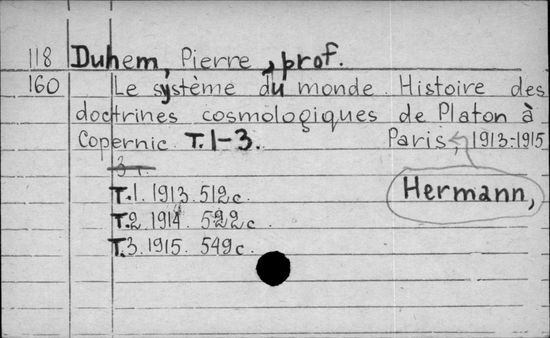 118 Duhem, Pierre, prof.
160 Le système du monde. Histoire des
doctrines cosmologiques de Platon à
Copernic T. 1-3. Paris, 1913-1915
3 т.
Hermann,
T.1. 1913. 512 c.
T.2. 1914. 522 c.
T.3. 1915. 549 c.